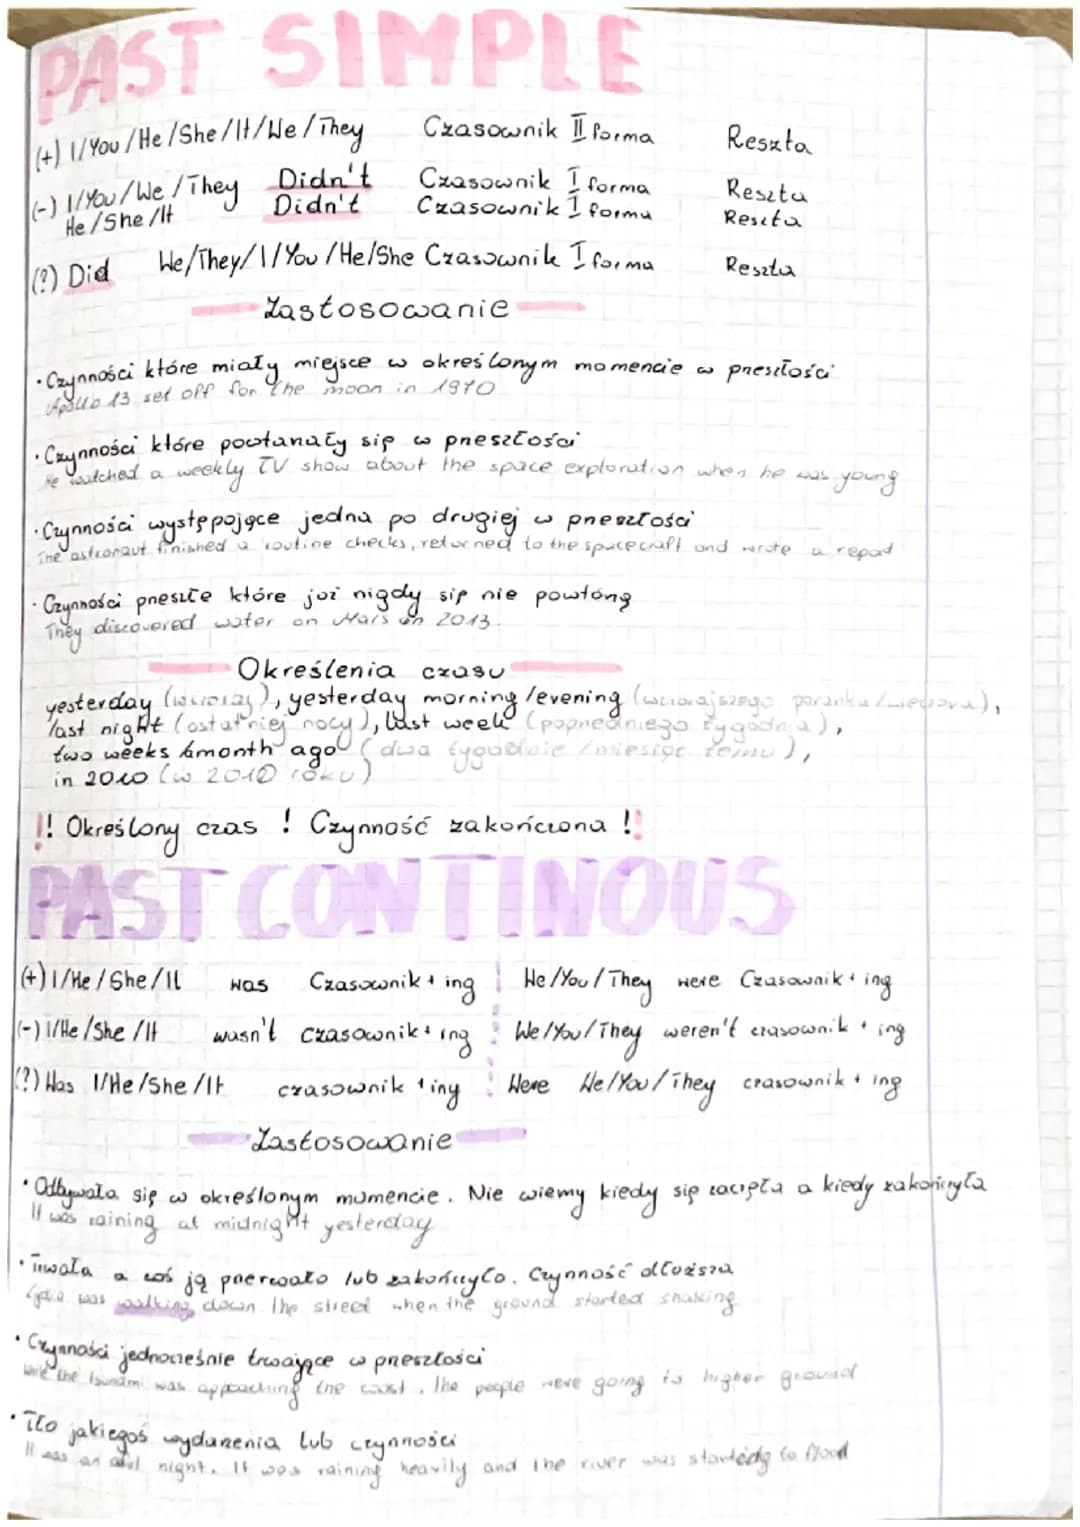 PAST SIMPLE
(+) I/You/He/She/It/We/They Czasownik II forma Reszta
(-) I/You/We/They Didn't Czasownik I forma Reszta
He/She/It Didn't Czasownik I forma Reszta
(?) Did We/They/I/You/He/She Czasownik I forma Reszta
Zastosowanie
· Czynności które miały miejsce w określonym momencie w przeszłości
Apollo 13 set off for the moon in 1970
· Czynności które powtarzały się w przeszłości
He watched a weekly TV show about the space exploration when he was young
· Czynności występojące jedna po drugiej w przeszłości
The astronaut finished a routine checks, returned to the spacecraft and wrote a report
· Czynności przeszłe które już nigdy się nie powtórzą
They discovered water on Mars in 2013.
Określenia czasu
yesterday (wczoraj), yesterday morning/evening (wczorajszego poranka/wieczora),
last night (ostatniej nocy), last week (poprzedniego tygodnia),
two weeks /month ago (dwa tygodnie /miesiąc temu),
in 2010 (w 2010 roku)
!! Określony czas ! Czynność zakończona !!
PAST CONTINOUS
(+) I/He/She/It was Czasownik + ing We/You/They were Czasownik + ing
(-) I/He/She/It wasn't czasownik + ing We/You/They weren't czasownik + ing
(?) Was I/He/She/It czasownik + ing Were We/You/They czasownik + ing
Zastosowanie
· Odbywała się w określonym momencie. Nie wiemy kiedy się zaczęła a kiedy zakończyła
It was raining at midnight yesterday
· Trwała a coś ją przerwało lub zakończyło. Czynność dłuższa
was walking down the street when the ground started shaking
· Czynności jednocześnie trwające w przeszłości
the tsunami was approaching the coast, the people were going to higher ground
· Tło jakiegoś wydarzenia lub czynności
It was an night. It was raining heavily and the river was starting to flood